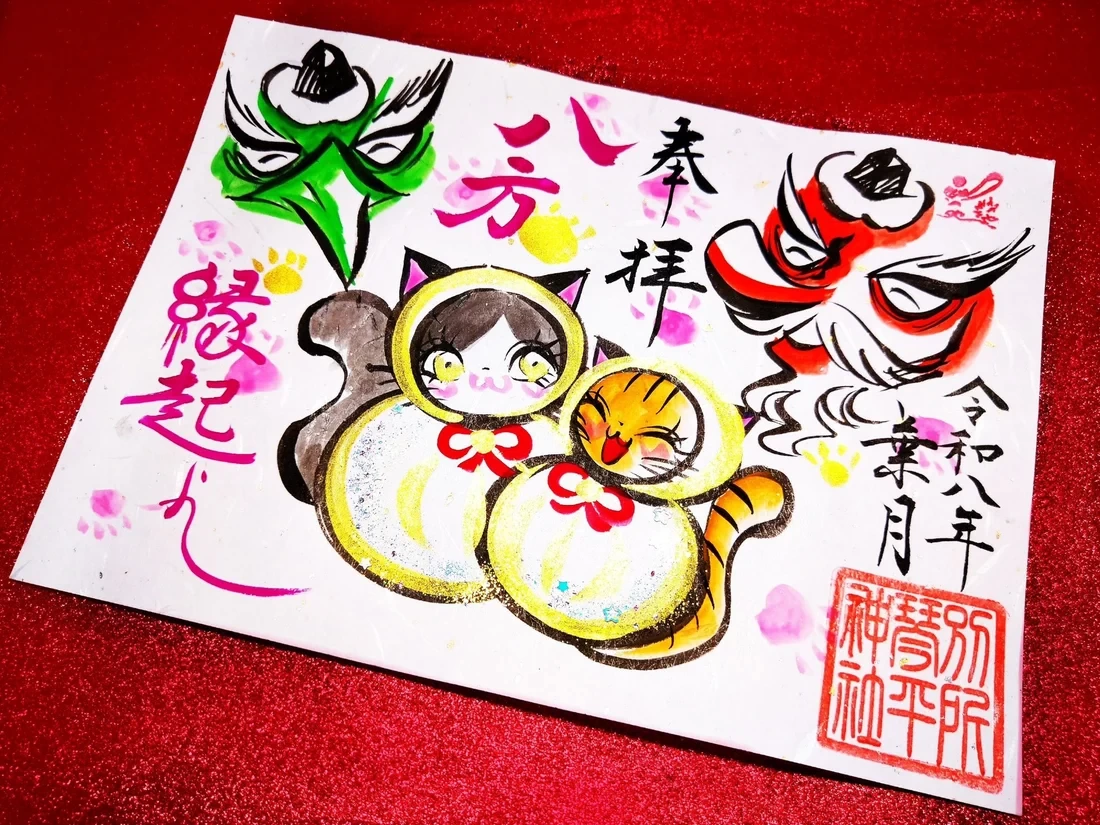 奉拝
八方
縁起よし
令和八年
葉月
別所
琴平
神社